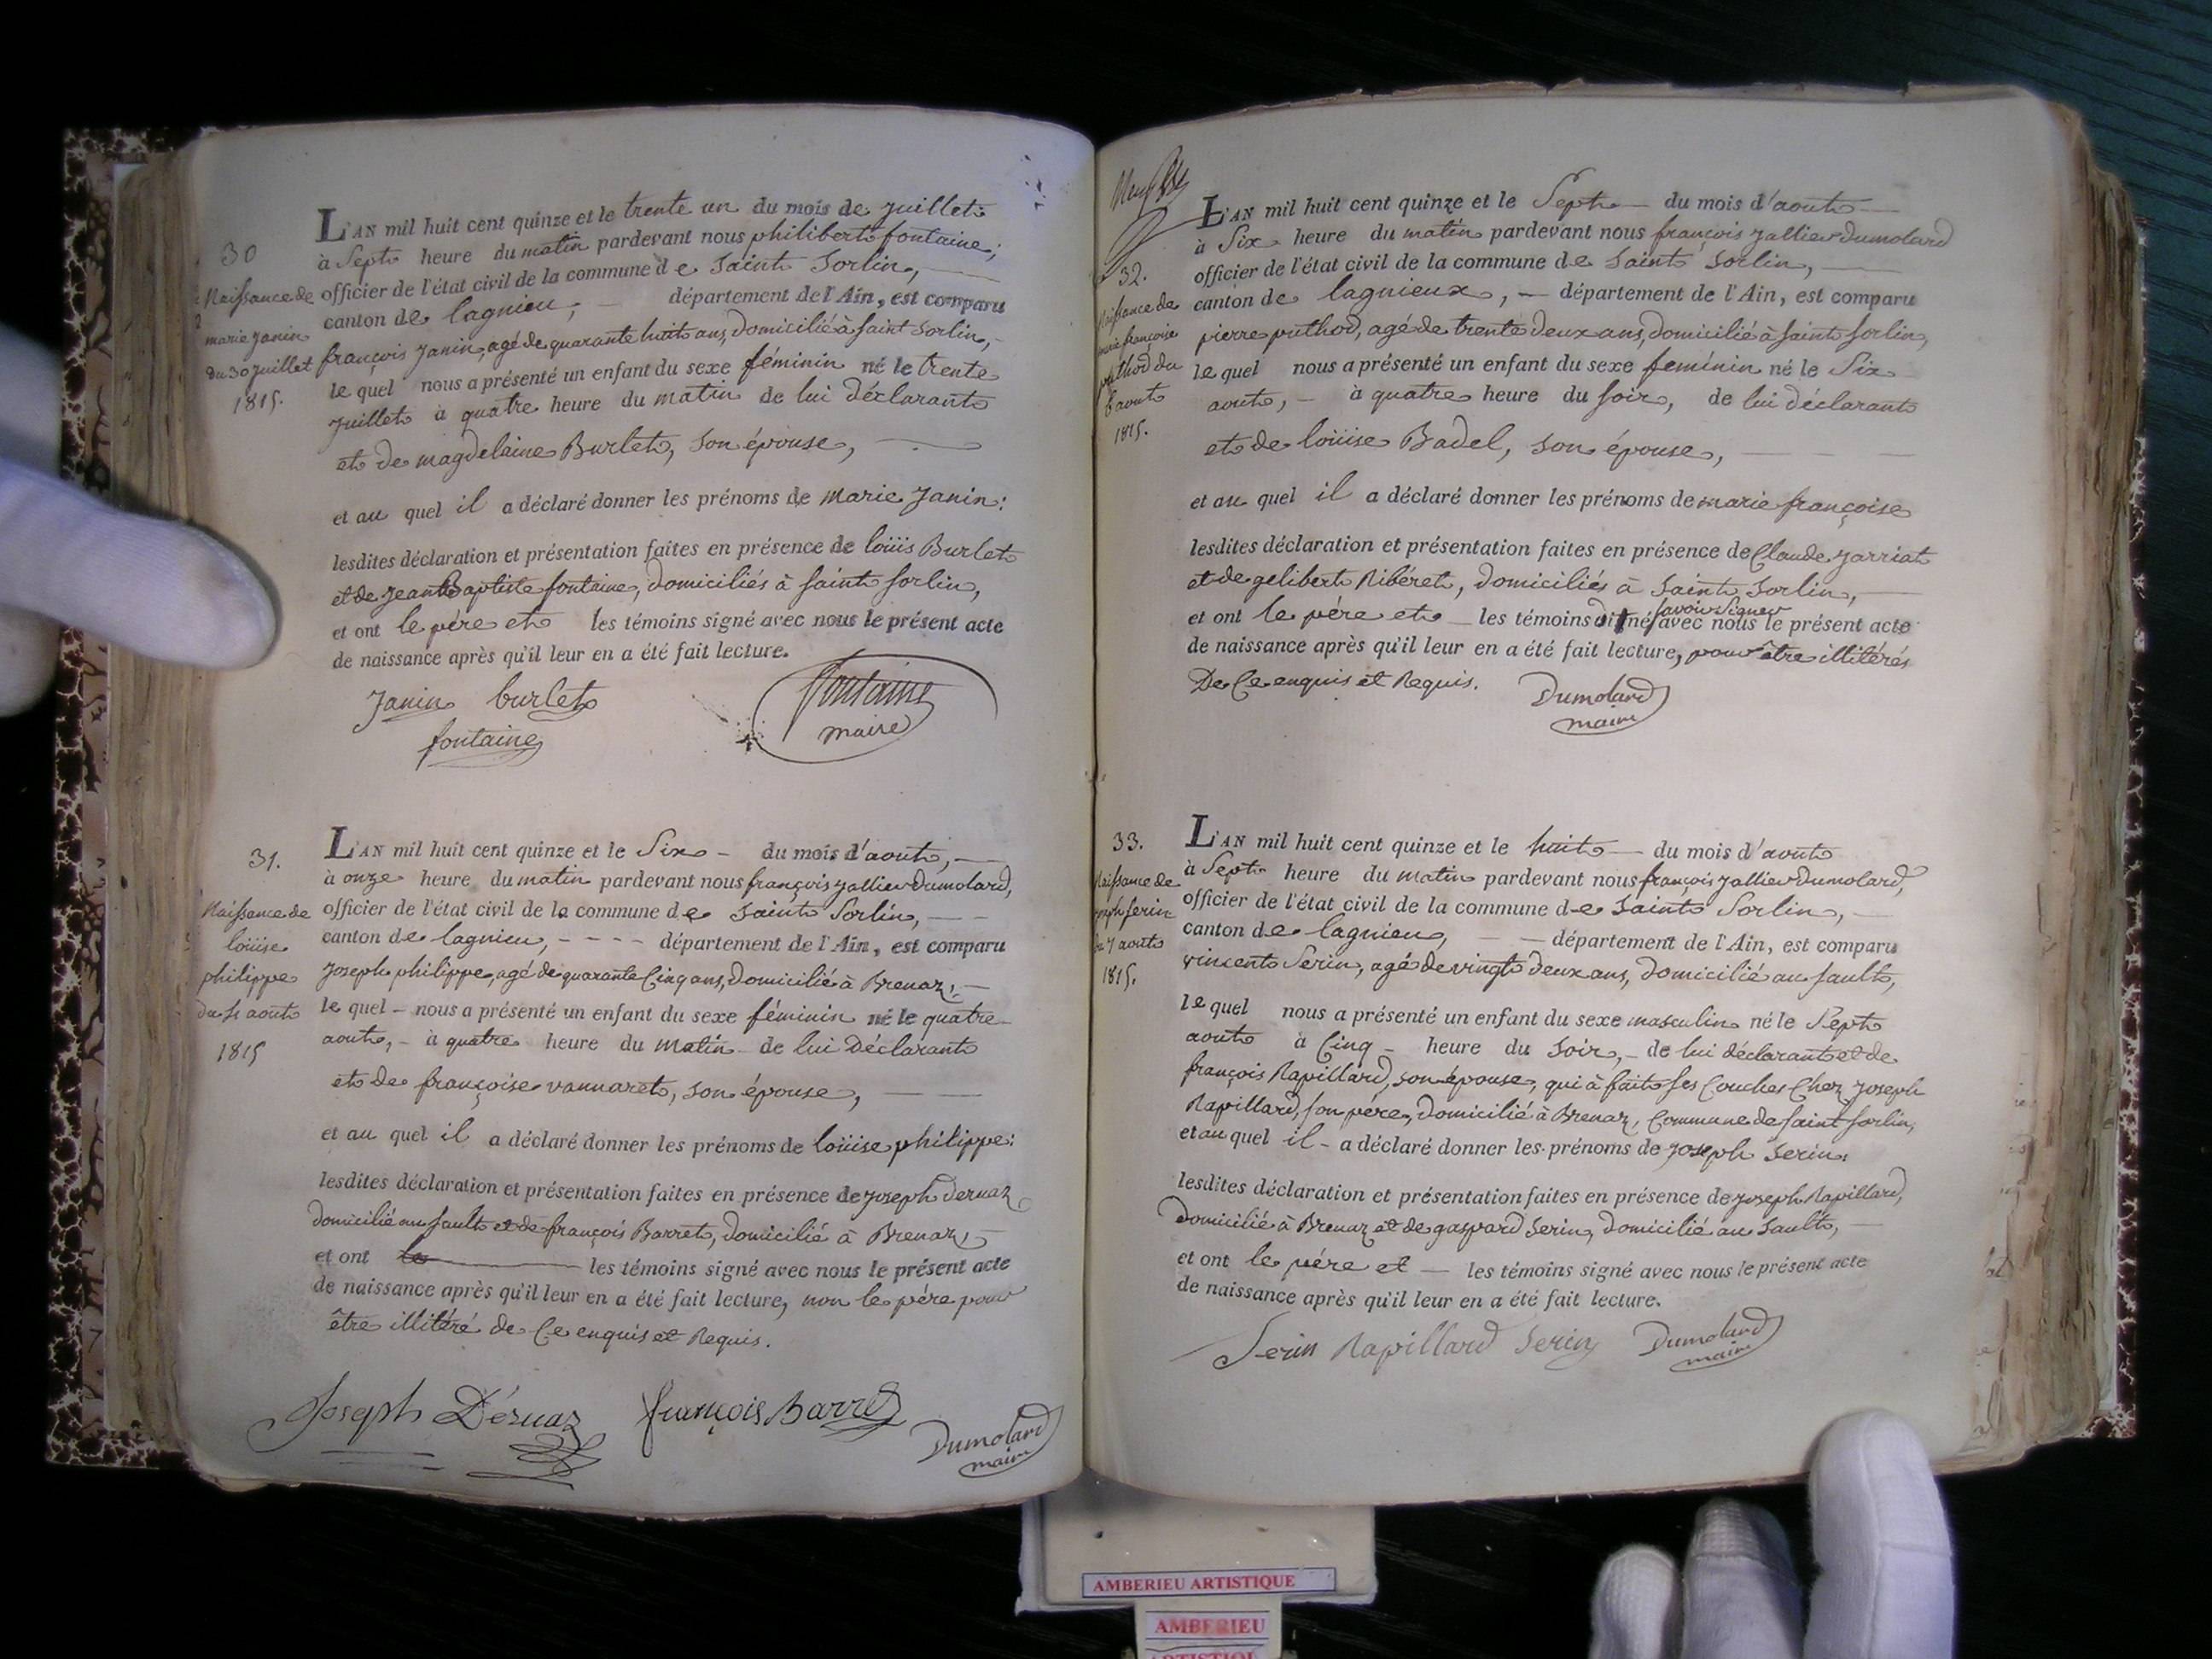 30
Naissance de
marie Janin
du 30 juillet
1815.
L'AN mil huit cent quinze et le trente un du mois de juillet
à Sept heure du matin pardevant nous philibert fontaine,
officier de l'état civil de la commune de Saint Sorlin,
canton de lagnieu, département de l'Ain, est comparu
françois Janin, agé de quarante huit ans, domicilié à saint Sorlin,
le quel nous a présenté un enfant du sexe féminin né le trente
juillet à quatre heure du matin de lui déclarant
et de magdelaine Burlet, son épouse,
et au quel il a déclaré donner les prénoms de marie Janin:
lesdites déclaration et présentation faites en présence de loüis Burlet
et de jean Baptiste fontaine, domiciliés à saint Sorlin,
et ont le père et les témoins signé avec nous le présent acte
de naissance après qu'il leur en a été fait lecture.
Janin burlet
fontaine
fontaine
maire
31.
Naissance de
loüise
philippe
du 4 aout
1815
L'AN mil huit cent quinze et le Six du mois d'aout,
à onze heure du matin pardevant nous françois jallier Dumolard,
officier de l'état civil de la commune de Saint Sorlin,
canton de lagnieu, département de l'Ain, est comparu
Joseph philippe, agé de quarante Cinq ans, domicilié à Brenaz,
le quel nous a présenté un enfant du sexe féminin né le quatre
aout, à quatre heure du matin de lui Déclarant
et de françoise vannaret, son épouse,
et au quel il a déclaré donner les prénoms de loüise philippe:
lesdites déclaration et présentation faites en présence de joseph Dernaz
domicilié au sault et de françois Barret, domicilié à Brenaz,
et ont les témoins signé avec nous le présent acte
de naissance après qu'il leur en a été fait lecture, non le père pour
être illitéré de Ce enquis et Requis.
Joseph Dérnaz françois Barret
Dumolard
maire
32.
Naissance de
marie françoise
puthod du
6 aout
1815.
L'AN mil huit cent quinze et le Sept du mois d'aout
à Six heure du matin pardevant nous françois jallier Dumolard
officier de l'état civil de la commune de Saint Sorlin,
canton de lagnieux, département de l'Ain, est comparu
pierre puthod, agé de trente Deux ans, domicilié à saint Sorlin,
le quel nous a présenté un enfant du sexe feminin né le Six
aout, à quatre heure du soir, de lui déclarant
et de loüise Badel, son épouse,
et au quel il a déclaré donner les prénoms de marie françoise
lesdites déclaration et présentation faites en présence de Claude jarriat
et de gelibert Ribéret, domiciliés à Saint Sorlin,
savoir Signer
et ont le père et les témoins avec nous le présent acte
de naissance après qu'il leur en a été fait lecture, pour être illitérés
De Ce enquis et Requis.
Dumolard
maire
33.
Naissance de
joseph serin
du 7 aout
1815.
L'AN mil huit cent quinze et le huit du mois d'aout
à Sept heure du matin pardevant nous françois jallier Dumolard,
officier de l'état civil de la commune de Saint Sorlin,
canton de lagnieu, département de l'Ain, est comparu
vincent Serin, agé de vingt Deux ans, domicilié au sault,
le quel nous a présenté un enfant du sexe masculin né le Sept
aout à Cinq heure du soir, de lui déclarant et de
françois Rapillard, son épouse, qui à fait ses Couches Chez joseph
Rapillard, son père, domicilié à Brenaz, Commune de saint Sorlin,
et au quel il a déclaré donner les prénoms de joseph serin.
lesdites déclaration et présentation faites en présence de joseph Rapillard,
domicilié à Brenaz et de gaspard Serin, domicilié au Sault,
et ont le père et les témoins signé avec nous le présent acte
de naissance après qu'il leur en a été fait lecture.
Serin Rapillard Serin
Dumolard
maire
AMBERIEU ARTISTIQUE
AMBERIEU
ARTISTIQUE